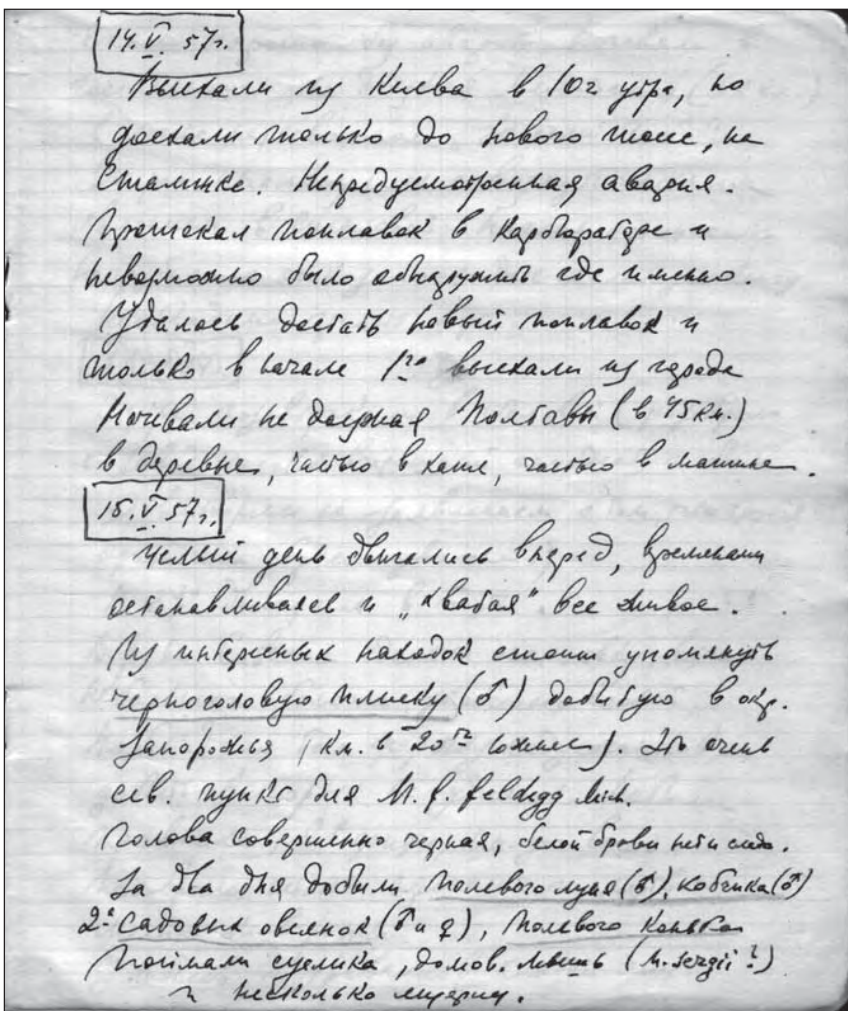 14.V.57г.
Выехали из Киева в 10 ч утра, но
доехали только до нового шоссе, на
Сталинке. Непредусмотренная авария.
Протекал поплавок в карбюраторе и
невозможно было обнаружить где именно.
Удалось достать новый поплавок и
только в начале 1го выехали из города
Ночевали не доезжая Полтавы (в 45 км.)
в деревне, частью в хате, частью в машине.
15.V.57г.
Целый день двигались вперед, временами
останавливаясь и „хватая" все живое.
Из интересных находок стоит упомянуть
черноголовую плиску (♂) добытую в окр.
Запорожья (км. в 20ти южнее). Это очень
сев. пункт для M. f. feldegg Mich.
Голова совершенно черная, белой брови нет и следа.
За два дня добыли полевого луня (♂), кобчика (♂)
2х садовых овсянок (♂ и ♀), полевого конька
Поймали суслика, домов. мышь (M. sergii ?)
и несколько ящериц.